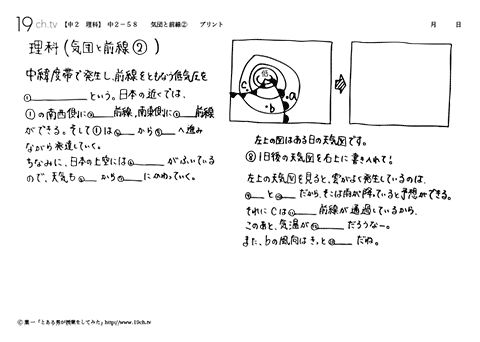 19ch.tv 【中2 理科】 中2-58 気団と前線② プリント 月 日
理科(気団と前線②)
中緯度帯で発生し、前線をともなう低気圧を
①________という。日本の近くでは、
①の南西側に②____前線、南東側に③____前線
ができる。そして①は④____から⑤____へ進み
ながら発達していく。
ちなみに、日本の上空には⑥________がふいている
ので、天気も⑦____から____にかわっていく。
低
c
a
b
左上の図はある日の天気図です。
⑧1日後の天気図を右上に書き入れて!
左上の天気図を見ると、雲がよく発生しているのは、
⑨____と⑩____だから、そこは雨が降っていると予想ができる。
それにCは⑪____前線が通過しているから、
このあと、気温が⑫____だろうなー。
また、bの風向はきっと⑬____だね。
© 葉一「とある男が授業をしてみた」http://www.19ch.tv